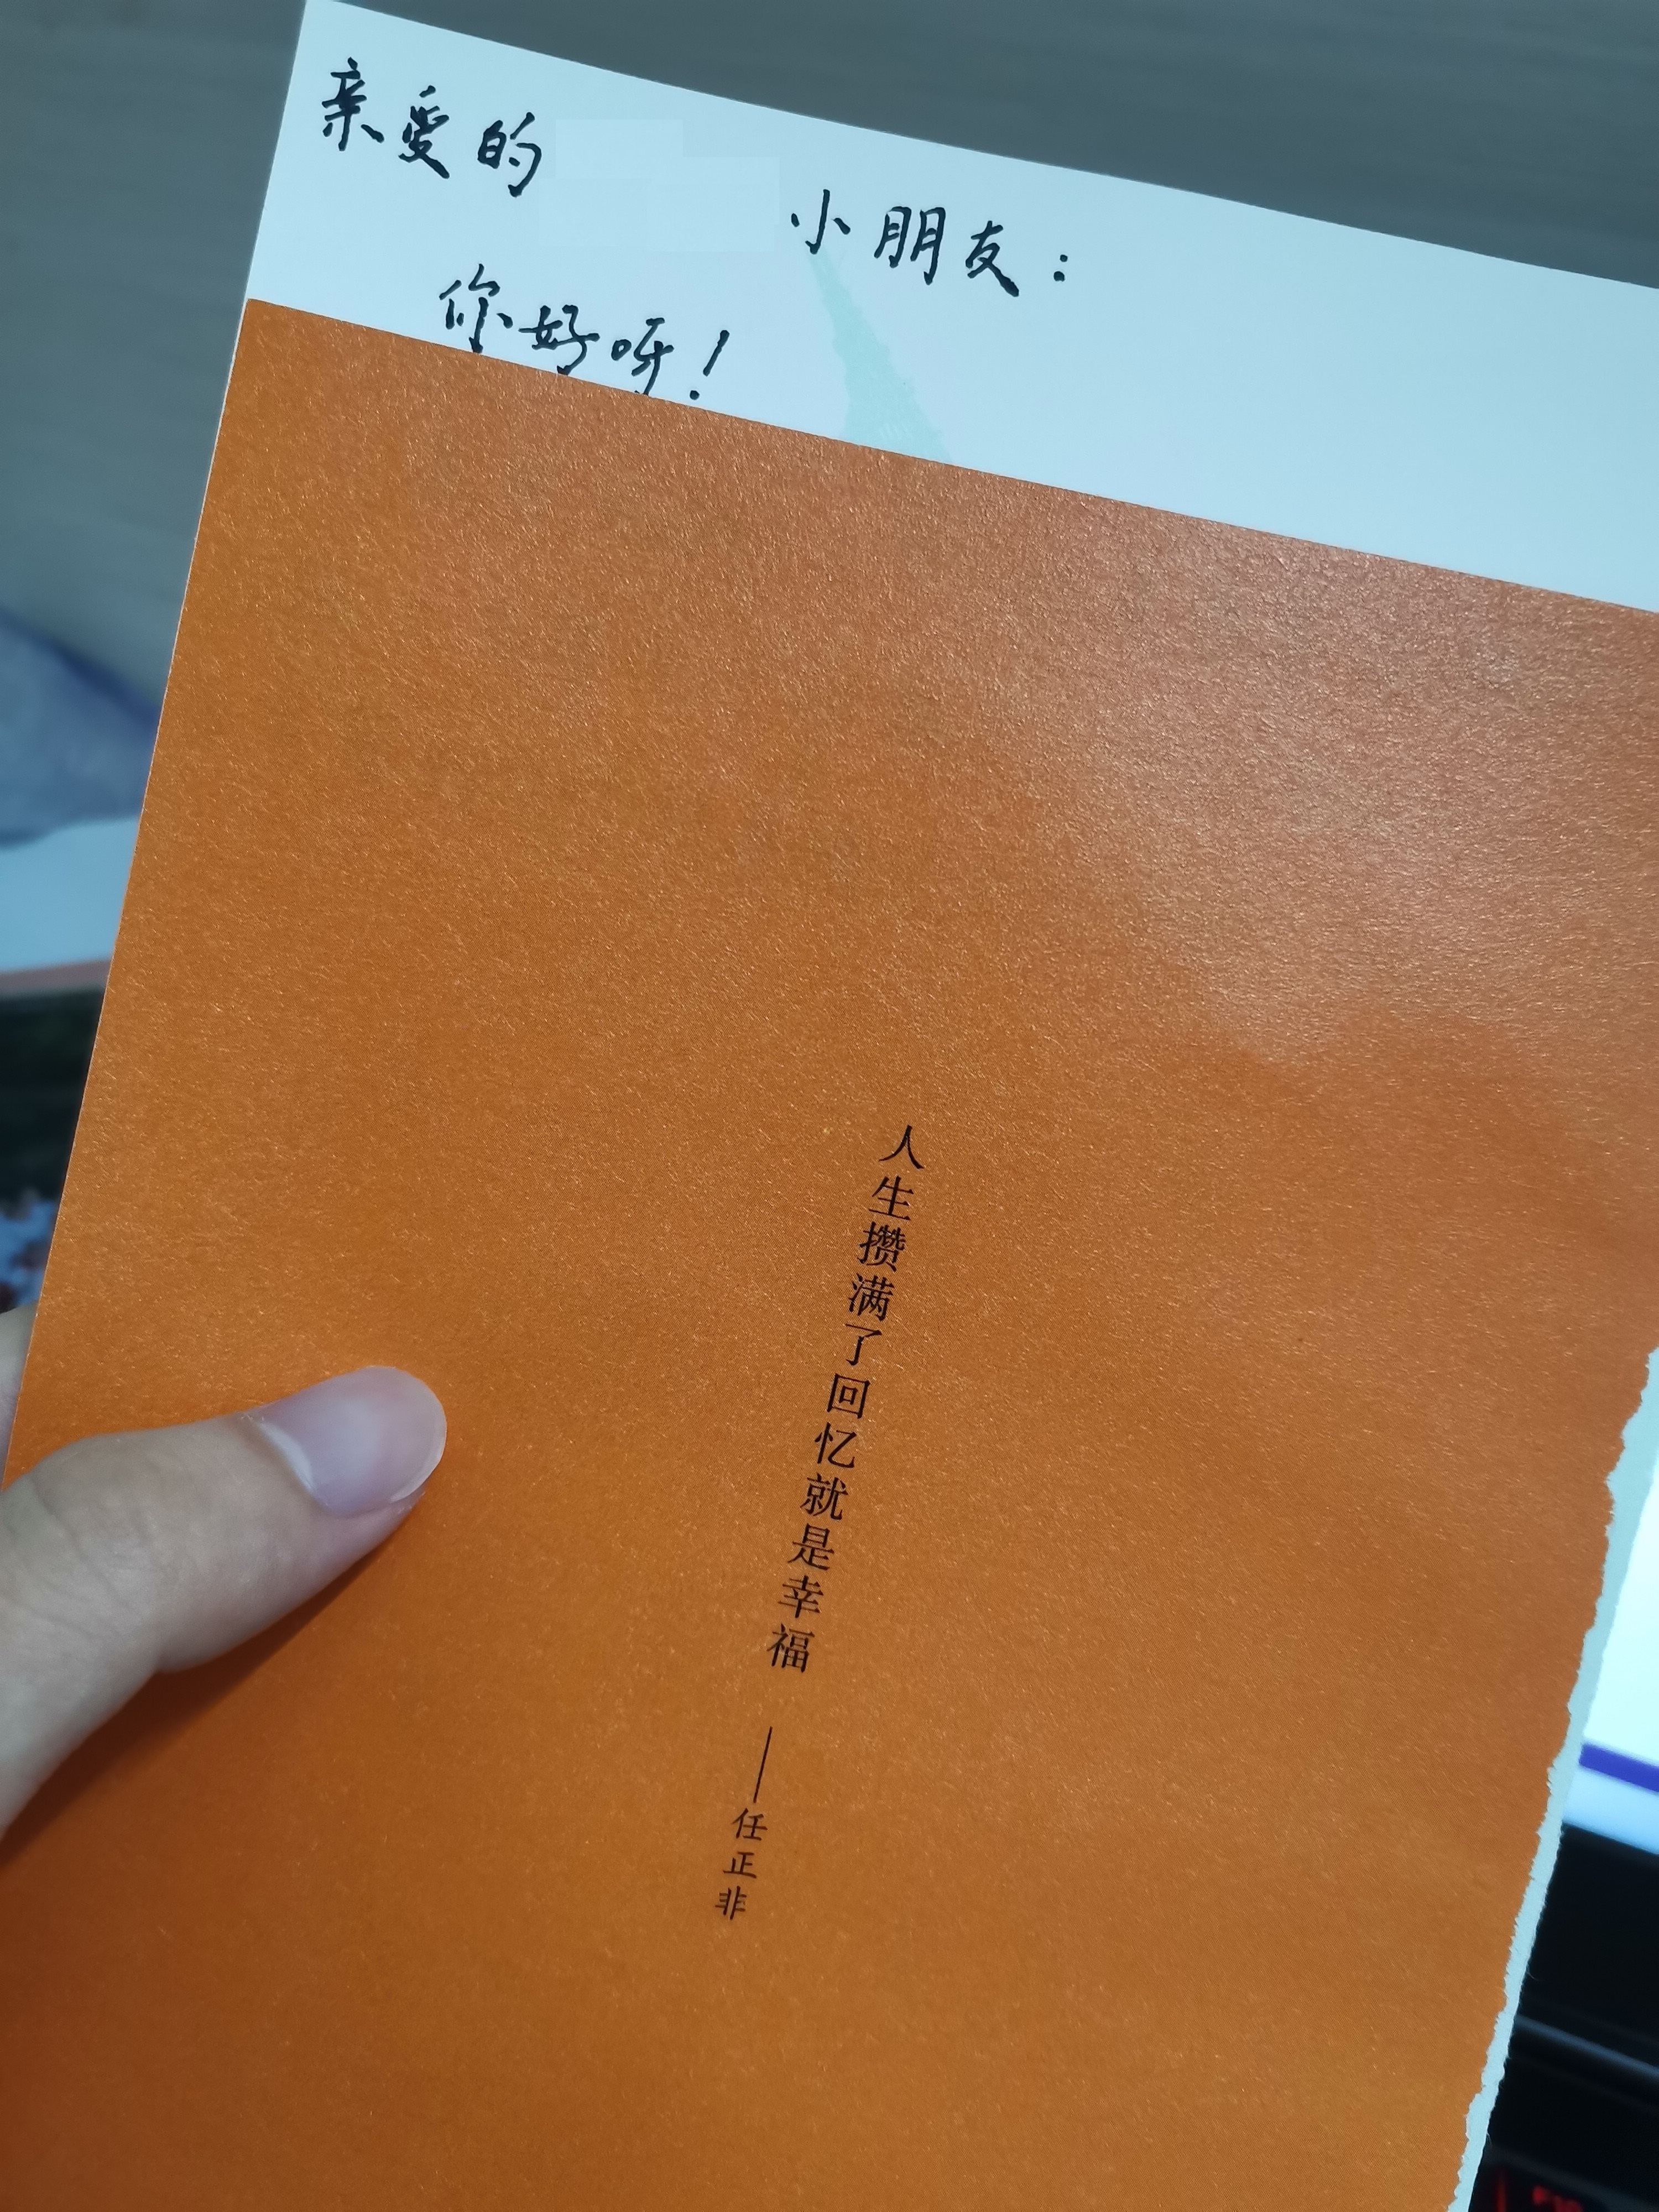 亲爱的 小朋友：
你好呀！
人生攒满了回忆就是幸福
——任正非